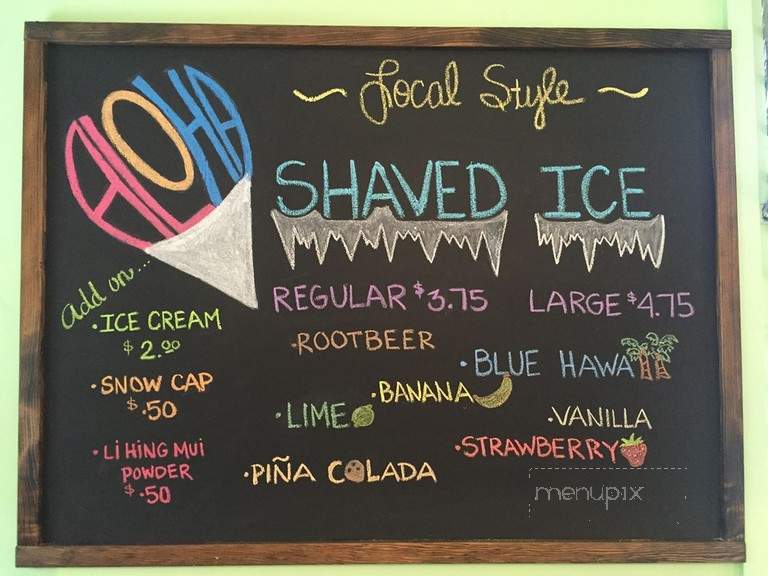 ALOHA
~ Local Style ~
SHAVED ICE
REGULAR $3.75
LARGE $4.75
add on...
·ICE CREAM
$2.00
·SNOW CAP
$.50
·LI HING MUI
POWDER
$.50
·ROOTBEER
·BLUE HAWAII
·BANANA
·LIME
·VANILLA
·STRAWBERRY
·PIÑA COLADA
menupix